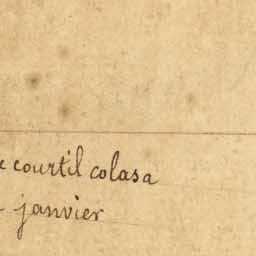 courtil colasa
janvier